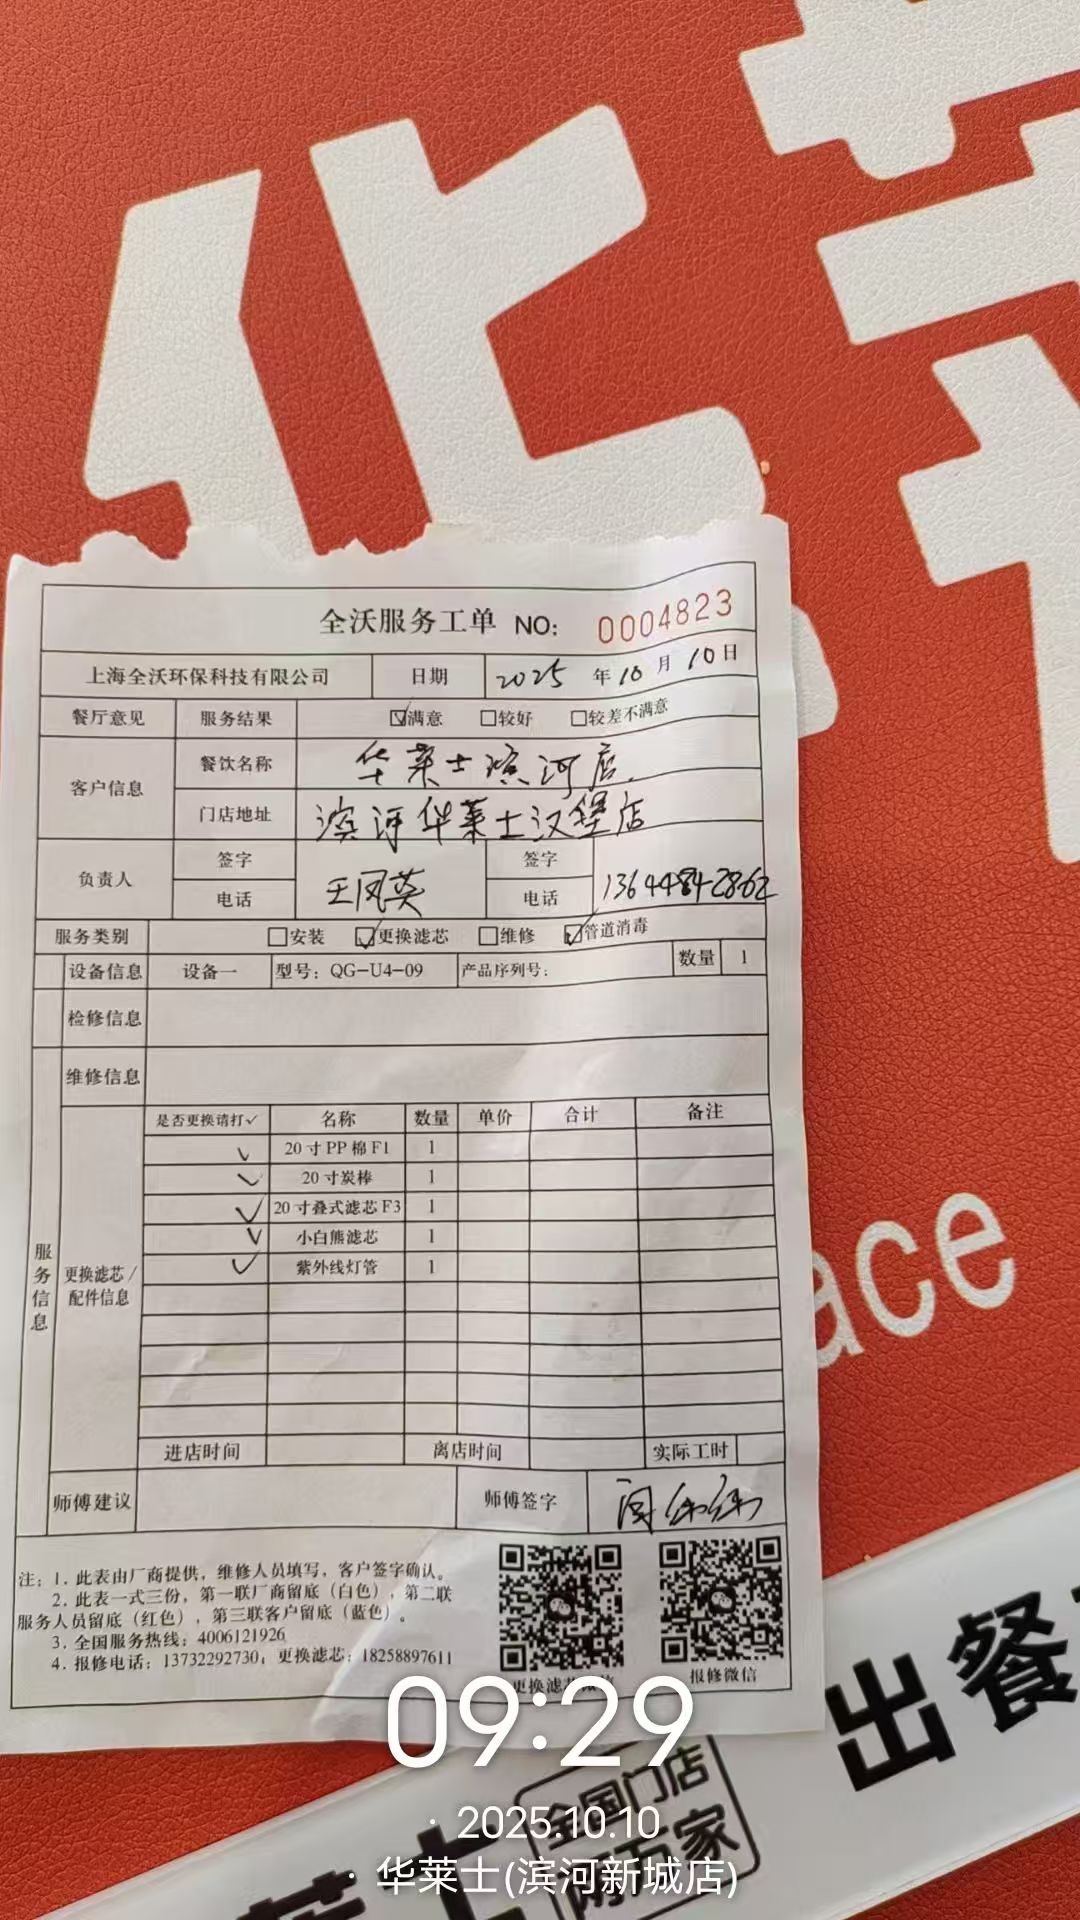 全沃服务工单 NO: 0004823
上海全沃环保科技有限公司 日期 2025 年 10 月 10 日
餐厅意见 服务结果 ☑满意 □较好 □较差不满意
客户信息 餐饮名称 华莱士滨河店.
门店地址 滨河华莱士汉堡店
负责人 签字 王凤英 签字
电话 电话 13644842862
服务类别 □安装 ☑更换滤芯 □维修 ☑管道消毒
设备信息 设备一 型号: QG-U4-09 产品序列号: 数量 1
检修信息
维修信息
服务信息
更换滤芯/配件信息
是否更换请打✓ 名称 数量 单价 合计 备注
✓ 20寸PP棉F1 1
✓ 20寸炭棒 1
✓ 20寸叠式滤芯F3 1
✓ 小白熊滤芯 1
✓ 紫外线灯管 1
进店时间 离店时间 实际工时
师傅建议 师傅签字
注: 1. 此表由厂商提供, 维修人员填写, 客户签字确认。
2. 此表一式三份, 第一联厂商留底 (白色), 第二联
服务人员留底 (红色), 第三联客户留底 (蓝色)。
3. 全国服务热线: 4006121926
4. 报修电话: 13732292730; 更换滤芯: 18258897611
报修微信
ace
出餐
全国门店
09:29
· 2025.10.10
· 华莱士(滨河新城店)